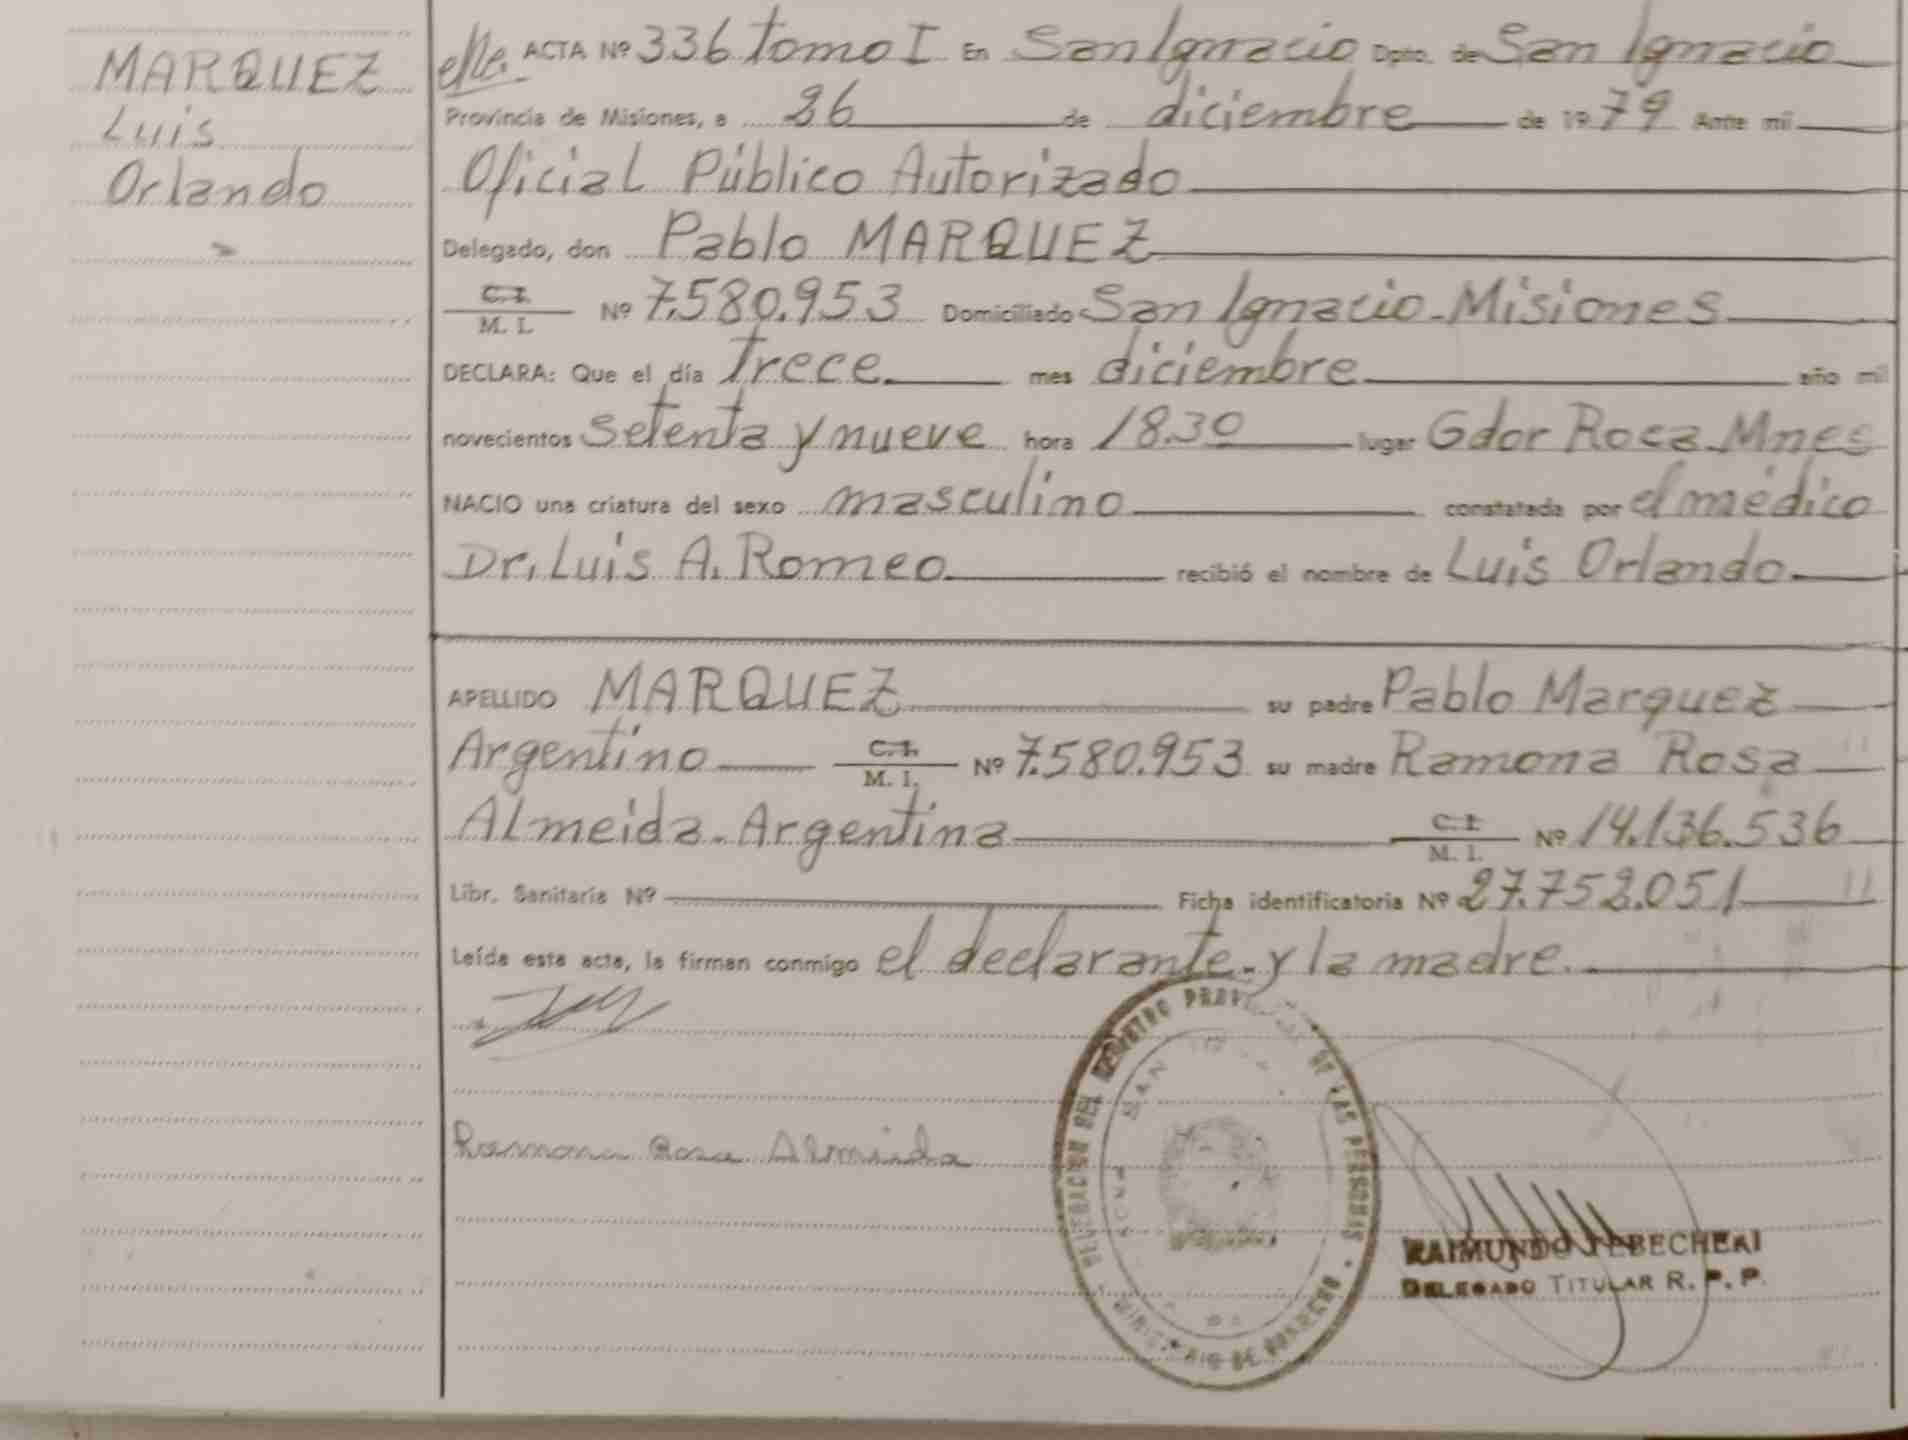 MARQUEZ
Luis
Orlando
ACTA Nº 336 tomo I En San Ignacio Dpto. de San Ignacio
Provincia de Misiones, a 26 de diciembre de 1979 Ante mi
Oficial Público Autorizado
Delegado, don Pablo MARQUEZ
C.I.
M. I. Nº 7.580.953 Domiciliado San Ignacio - Misiones
DECLARA: Que el día trece mes diciembre año mil
novecientos setenta y nueve hora 18.30 lugar Gdor Roca - Mnes
NACIO una criatura del sexo masculino constatada por el médico
Dr. Luis A. Romeo recibió el nombre de Luis Orlando
APELLIDO MARQUEZ su padre Pablo Marquez
Argentino C.I.
M. I. Nº 7.580.953 su madre Ramona Rosa
Almeida - Argentina C.I.
M. I. Nº 14.136.536
Libr. Sanitaria Nº Ficha identificatoria Nº 27.752.051
Leída esta acta, la firman conmigo el declarante y la madre
Ramona Rosa Almeida
DEL REGISTRO DE LAS PERSONAS
SAN
MINISTERIO DE GOBIERNO
RAIMUNDO
DELEGADO TITULAR R. P. P.